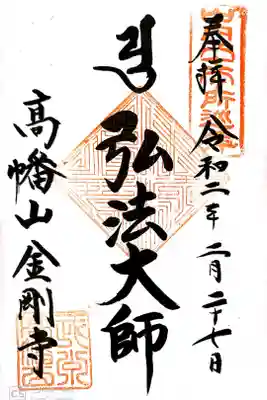 奉拝 令和二年 二月二十七日
弘法大師
高幡山 金剛寺